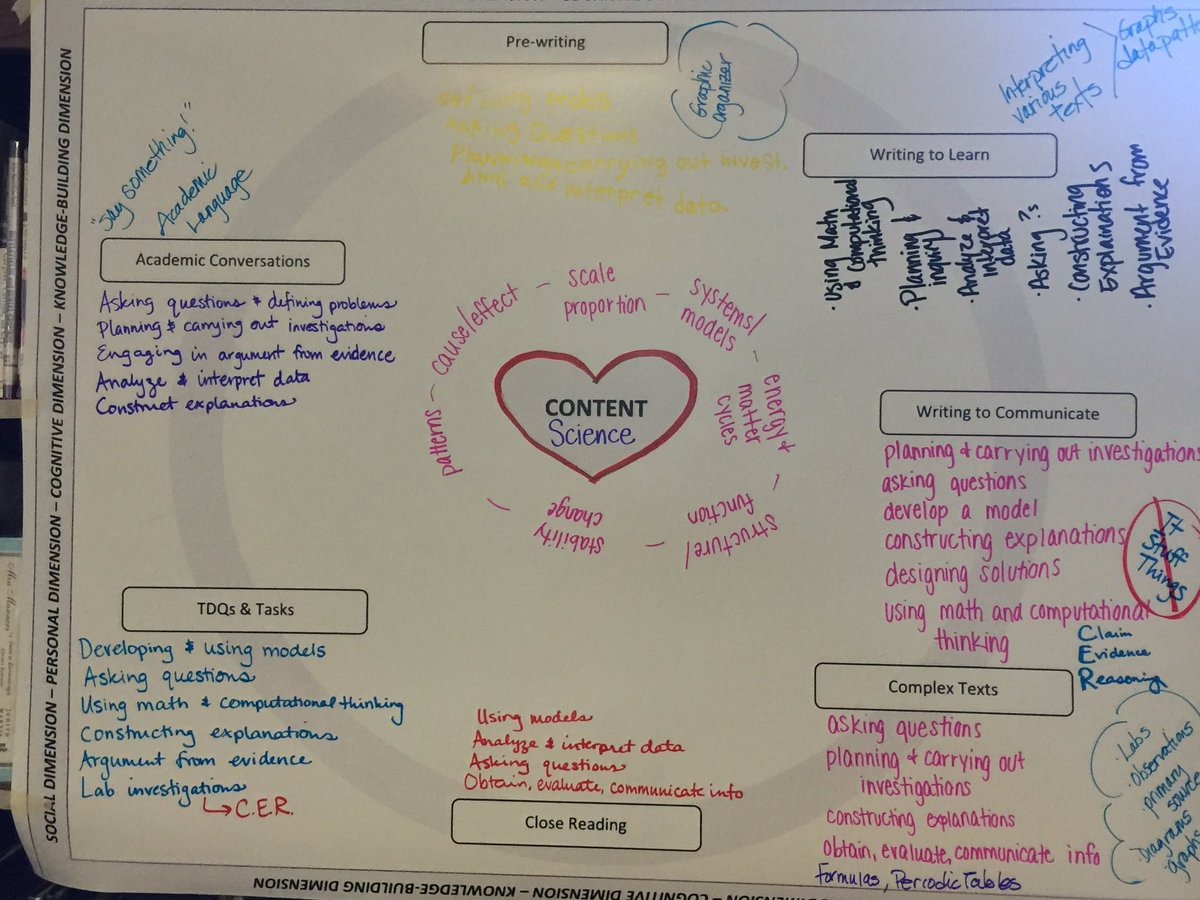 Pre-writing
Graphic
organizer
defining probs
Asking Questions
Planning & carrying out invest.
and interpret data
Interpreting
various
texts
Graphs
data patte
"Say something!"
Academic
Language
Writing to Learn
· Using Math
& Computational
thinking
· Planning &
inquiry
· Analyze &
interpret
data
· Asking ?s
· Constructing
Explainations
· Argument from
Evidence
Academic Conversations
Asking questions & defining problems
Planning & carrying out investigations
Engaging in argument from evidence
Analyze & interpret data
Construct explanations
patterns – cause/effect – scale
proportion – systems/
models – energy &
matter
cycles – structure/
function – stability
change
CONTENT
Science
Writing to Communicate
planning & carrying out investigations
asking questions
develop a model
constructing explanations
designing solutions
using math and computational
thinking
Stuff
Things
Claim
Evidence
Reasoning
TDQs & Tasks
Developing & using models
Asking questions
Using math & computational thinking
Constructing explanations
Argument from evidence
Lab investigations
C.E.R.
Using models
Analyze & interpret data
Asking questions
Obtain, evaluate, communicate info
Close Reading
Complex Texts
asking questions
planning & carrying out
investigations
constructing explanations
obtain, evaluate, communicate info
Formulas, Periodic Tables
· Labs
· Observations
· primary
source
· Diagrams
graphs
SOCIAL DIMENSION – PERSONAL DIMENSION – COGNITIVE DIMENSION – KNOWLEDGE-BUILDING DIMENSION
– COGNITIVE DIMENSION – KNOWLEDGE-BUILDING DIMENSION